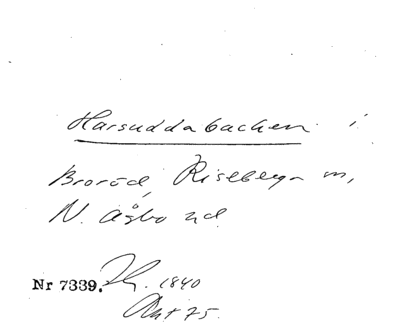 Harsuddabacken i
Broröd, Riseberga sn,
N. Åsbo hd.
Nr 7339. 1840
Akt 75.